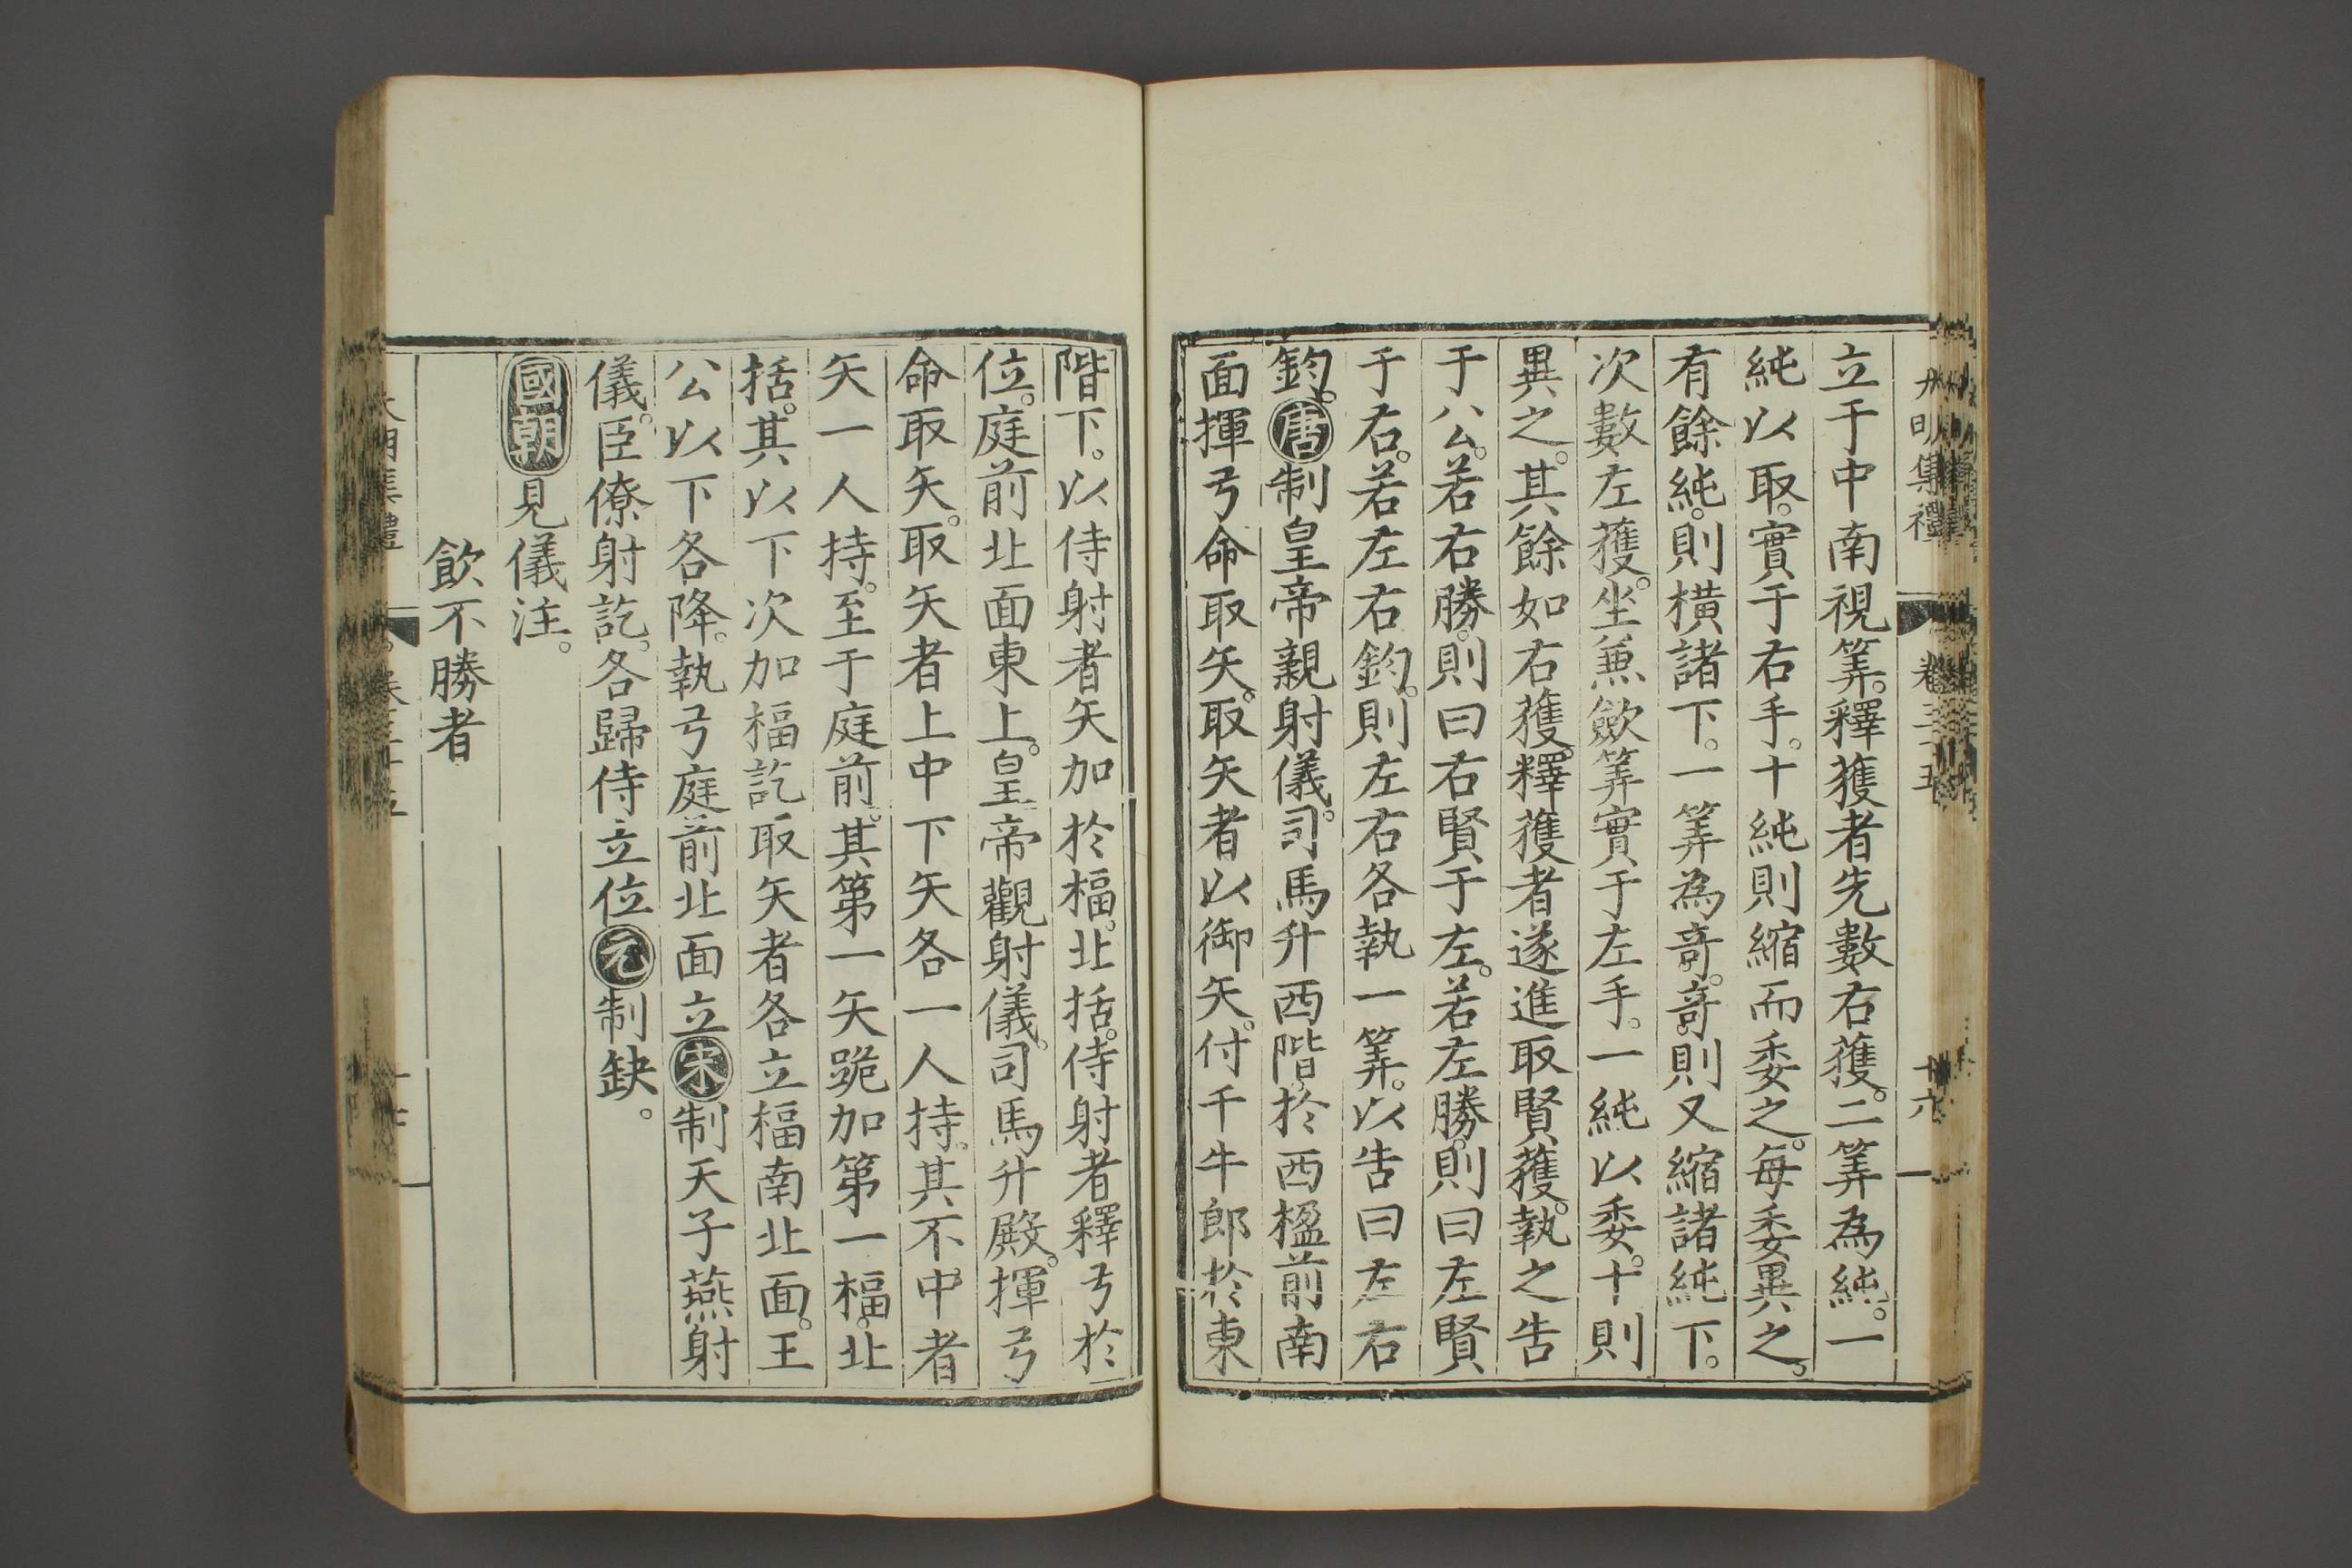 大明集禮 卷三十五 十六
立于中南視筭。釋獲者先數右獲。二筭為純。一
純以取。實于右手。十純則縮而委之。每委異之。
有餘純。則橫諸下。一筭為竒。竒則又縮諸純下。
次數左獲。坐兼斂筭實于左手。一純以委。十則
異之。其餘如右獲。釋獲者遂進取賢獲。執之告
于公。若右勝。則曰右賢于左。若左勝。則曰左賢
于右。若左右鈞。則左右各執一筭。以告曰左右
鈞。唐制皇帝親射儀。司馬升西階。於西楹前南
面揮弓命取矢。取矢者以御矢。付千牛郎於東
階下。以侍射者矢加於楅。北括。侍射者釋弓於
位。庭前北面東上。皇帝觀射儀。司馬升殿。揮弓
命取矢。取矢者上中下矢各一人持。其不中者
矢一人持。至于庭前。其第一矢跪加第一楅。北
括。其以下次加楅訖取矢者各立楅南北面。王
公以下各降。執弓庭前北面立宋制天子燕射
儀。臣僚射訖。各歸侍立位元制缺。
國朝見儀注。
飲不勝者